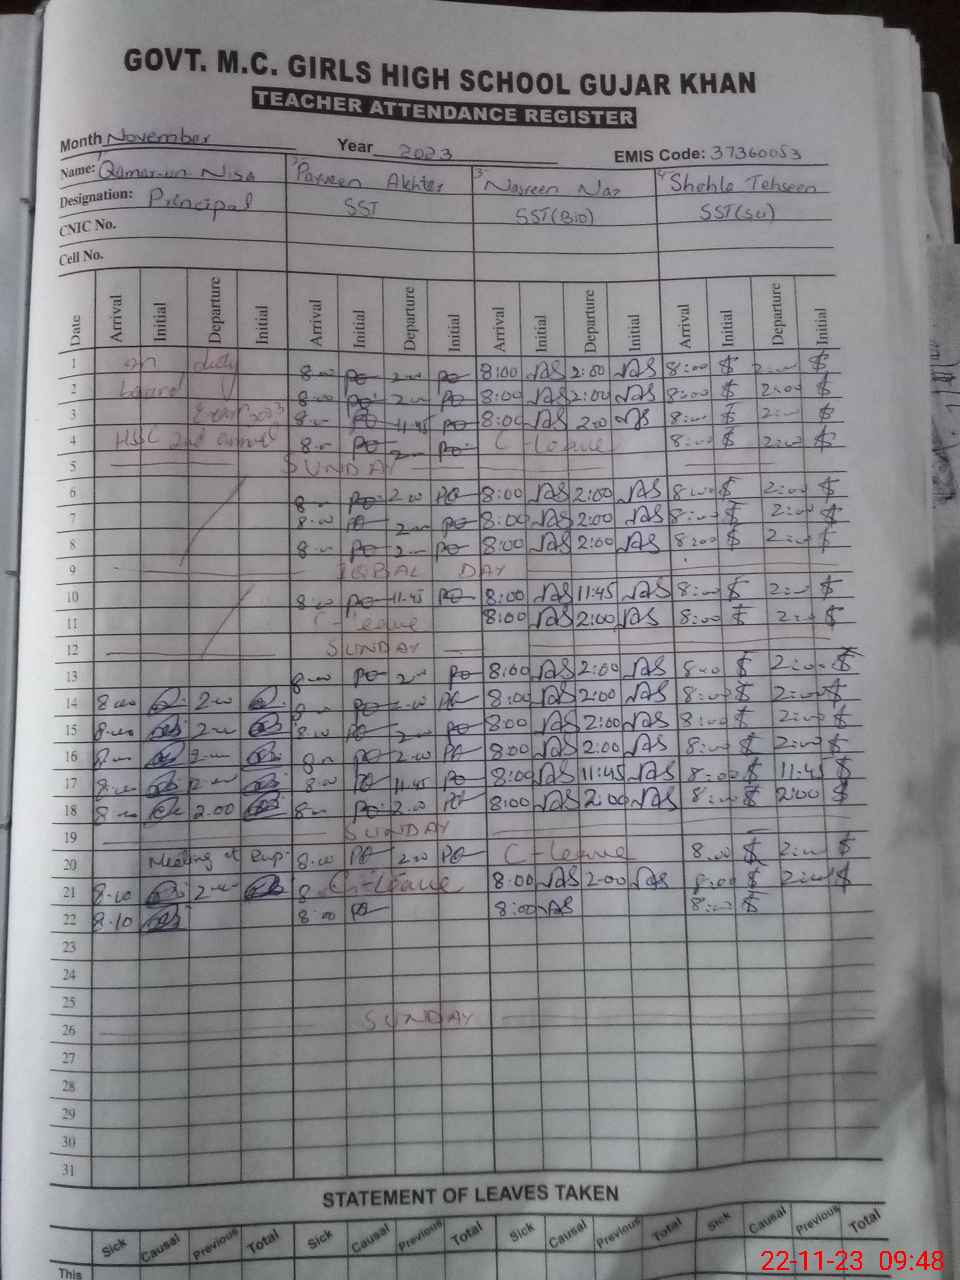 GOVT. M.C. GIRLS HIGH SCHOOL GUJAR KHAN
TEACHER ATTENDANCE REGISTER
Month November Year 2023 EMIS Code: 37360053
Name: 1 Qamar-un-Nisa 2 Parveen Akhter 3 Nasreen Naz 4 Shehla Tehseen
Designation: Principal SST SST(BIO) SST(Sci)
CNIC No.
Cell No.
Date Arrival Initial Departure Initial Arrival Initial Departure Initial Arrival Initial Departure Initial Arrival Initial Departure Initial
1 on duty 8:00 2:00 8:00 2:00 8:00 2:00
2 board 8:00 2:00 8:00 2:00 8:00 2:00
3 8:00 11:45 8:00 2:00 8:00 2:00
4 HSSC 2nd annual 8:00 2:00 C-leave 8:00 2:00
5 SUNDAY
6 8:00 2:00 8:00 2:00 8:00 2:00
7 8:00 2:00 8:00 2:00 8:00 2:00
8 8:00 2:00 8:00 2:00 8:00 2:00
9 IQBAL DAY
10 8:00 11:45 8:00 11:45 8:00 2:00
11 C-leave 8:00 2:00 8:00 2:00
12 SUNDAY
13 8:00 2:00 8:00 2:00 8:00 2:00
14 8:00 2:00 8:00 2:00 8:00 2:00 8:00 2:00
15 8:00 2:00 8:00 2:00 8:00 2:00 8:00 2:00
16 8:00 2:00 8:00 2:00 8:00 2:00 8:00 2:00
17 8:00 2:00 8:00 11:45 8:00 11:45 8:00 11:45
18 8:00 2.00 8:00 2:00 8:00 2:00 8:00 2:00
19 SUNDAY
20 Meeting at 8:00 2:00 C-leave 8:00 2:00
21 8.10 2:00 8 C-leave 8:00 2:00 8:00 2:00
22 8.10 8:00 8:00 8:00
23
24
25
26 SUNDAY
27
28
29
30
31
STATEMENT OF LEAVES TAKEN
Sick Causal Previous Total Sick Causal Previous Total Sick Causal Previous Total Sick Causal Previous Total
This
22-11-23 09:48